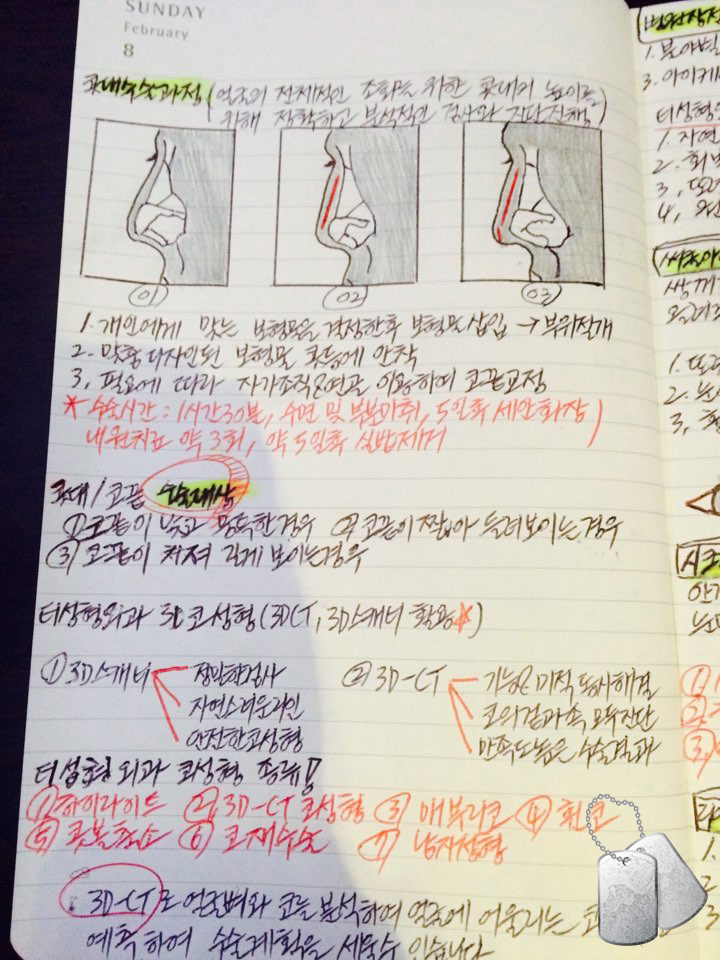 SUNDAY
February
8
콧대수술과정 (얼굴의 전체적인 조화를 위한 콧대의 높이를
위해 정확하고 분석적인 검사와 진단 진행)
01 02 03
1. 개인에게 맞는 보형물을 결정한후 보형물 삽입 → 부위절개
2. 맞춤 디자인된 보형물 콧등에 안착
3. 필요에 따라 자가조직&연골 이용하여 코끝교정
* 수술시간 : 1시간30분, 수면 및 부분마취, 5일후 세안화장
내원치료 약 3회, 약 5일후 실밥제거
콧대 / 코끝 수술대상
① 코끝이 낮고 뭉뚝한경우 ② 코끝이 짧아 들려보이는경우
③ 코끝이 처져 길게 보이는경우
터성형외과 3D 코성형 (3DCT, 3D스캐너 활용*)
① 3D스캐너 정밀한검사
자연스러운라인
안전한코성형
② 3D-CT 기능은 미적 동시해결
코의 겉과 속 모두진단
만족도높은 수술결과
터성형외과 코성형 종류!
① 하이라이트 ② 3D-CT 코성형 ③ 매부리코 ④ 휜코
⑤ 콧볼축소 ⑥ 코재수술 ⑦ 남자성형
3D-CT로 얼굴뼈와 코를 분석하여 얼굴에 어울리는
예측하여 수술계획을 세울수 있습니다
1.
3. 아이케
터성형
1. 자연
2.
3. 또
4.
1. 또
2. 눈
3.
①
②
③
1.
2
3